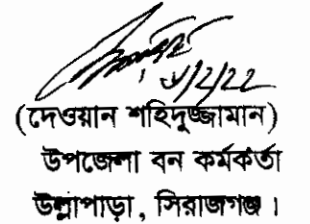 (দেওয়ান শহিদুজ্জামান)
উপজেলা বন কর্মকর্তা
উল্লাপাড়া, সিরাজগঞ্জ।